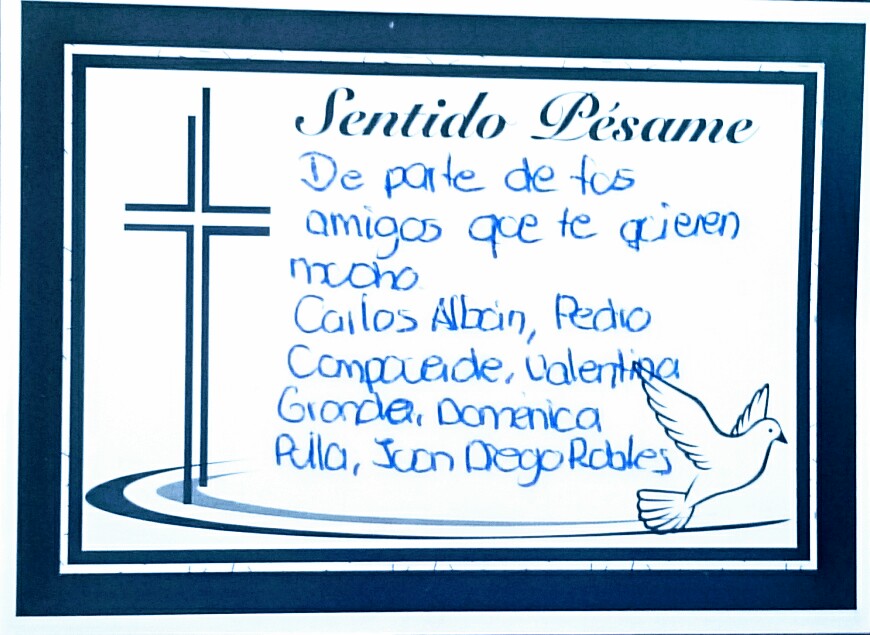 Sentido Pésame
De parte de tus
amigos que te quieren
mucho
Carlos Albán, Pedro
Campoverde, Valentina
Granda, Doménica
Pulla, Juan Diego Robles